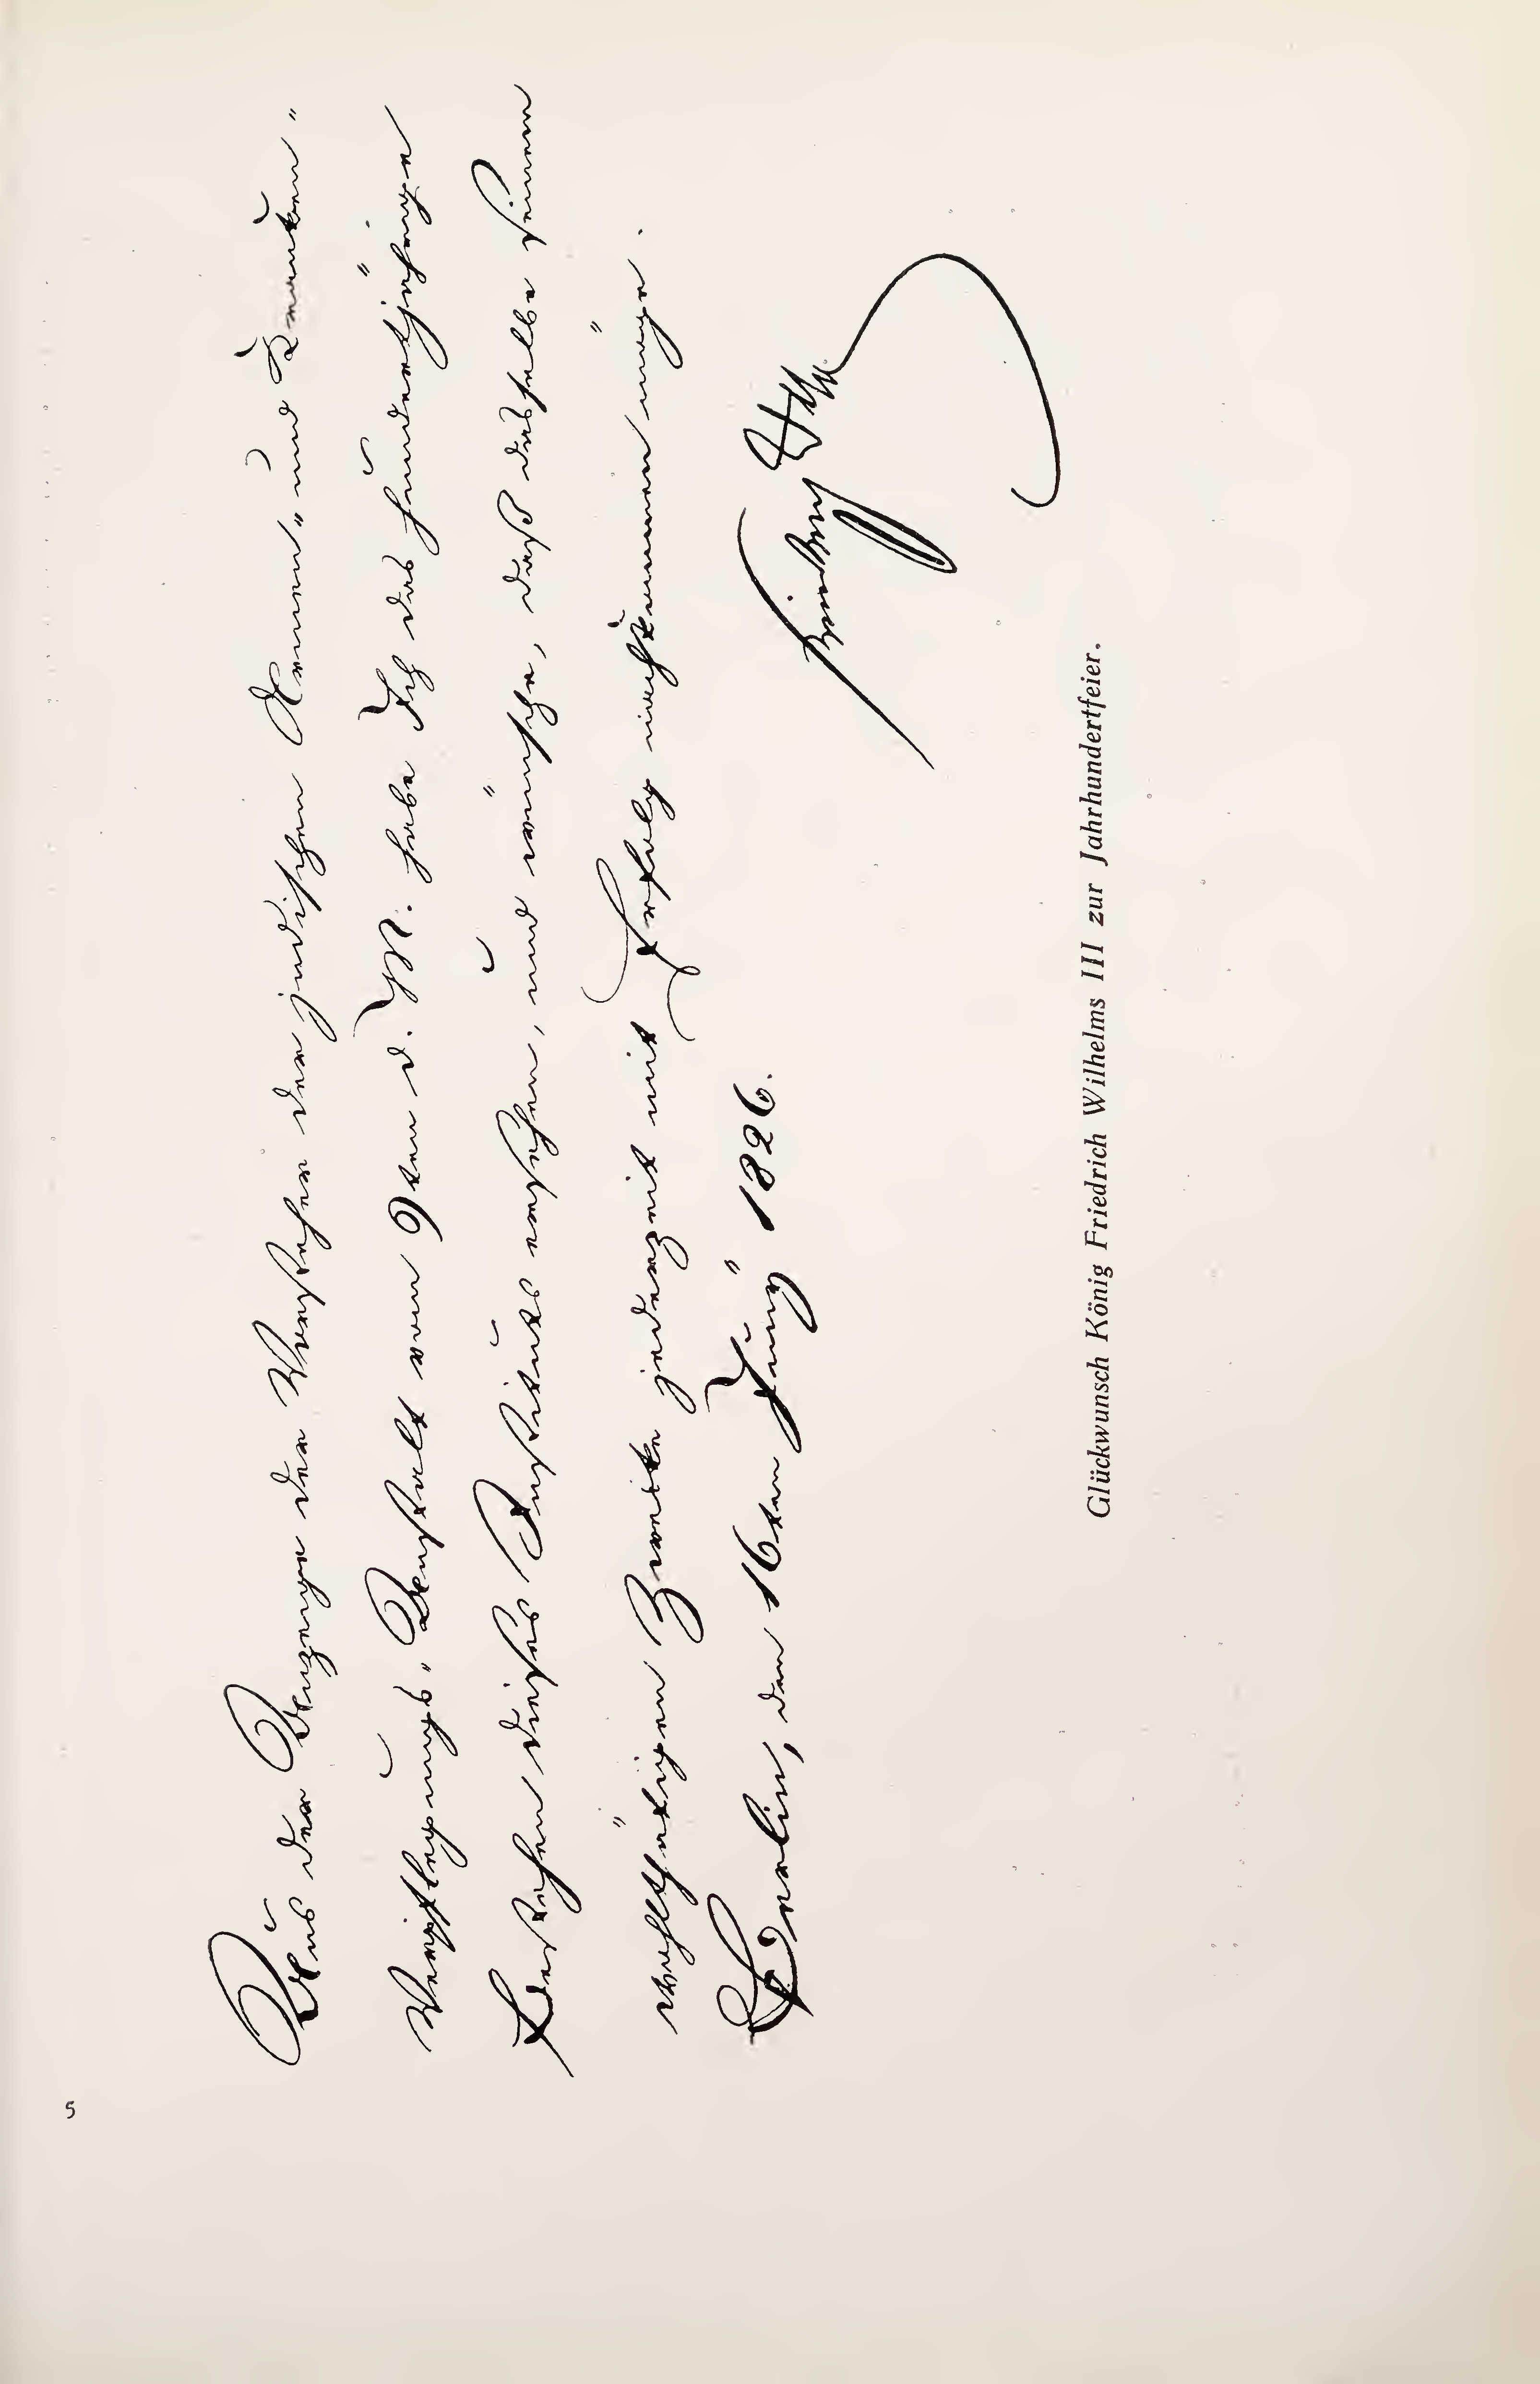 Aus der Anzeige der Vorsteher der jüdischen Armen- und Kranken-
Verpflegungs-Anstalt vom 9ten d. M. habe Ich das hundertjährige
Bestehen dieses Instituts ersehen, und wünsche, daß dasselbe seinen
wohlthätigen Zweck jederzeit mit Erfolg nachkommen möge.
Berlin, den 16ten Juny 1826.
Friedrich Wilhelm
Glückwunsch König Friedrich Wilhelms III zur Jahrhundertfeier.
5